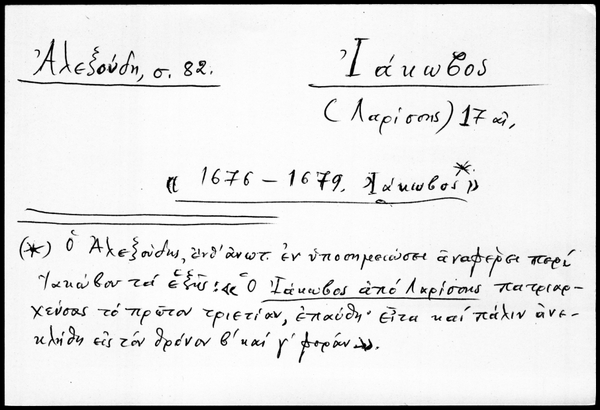 Ἀλεξούδη, σ. 82.
Ἰάκωβος
(Λαρίσσης) 17 αἰ,
« 1676 – 1679. Ἰάκωβος* »
(*) Ὁ Ἀλεξούδης, ἔνθ' ἀνωτ. ἐν ὑποσημειώσει ἀναφέρει περί
Ἰακώβου τά ἑξῆς: « Ὁ Ἰάκωβος ἀπό Λαρίσσης πατριαρ-
χεύσας τό πρῶτον τριετίαν, ἐπαύθη· εἶτα καί πάλιν ἀνε-
κλήθη εἰς τόν θρόνον β' καί γ' φοράν ».